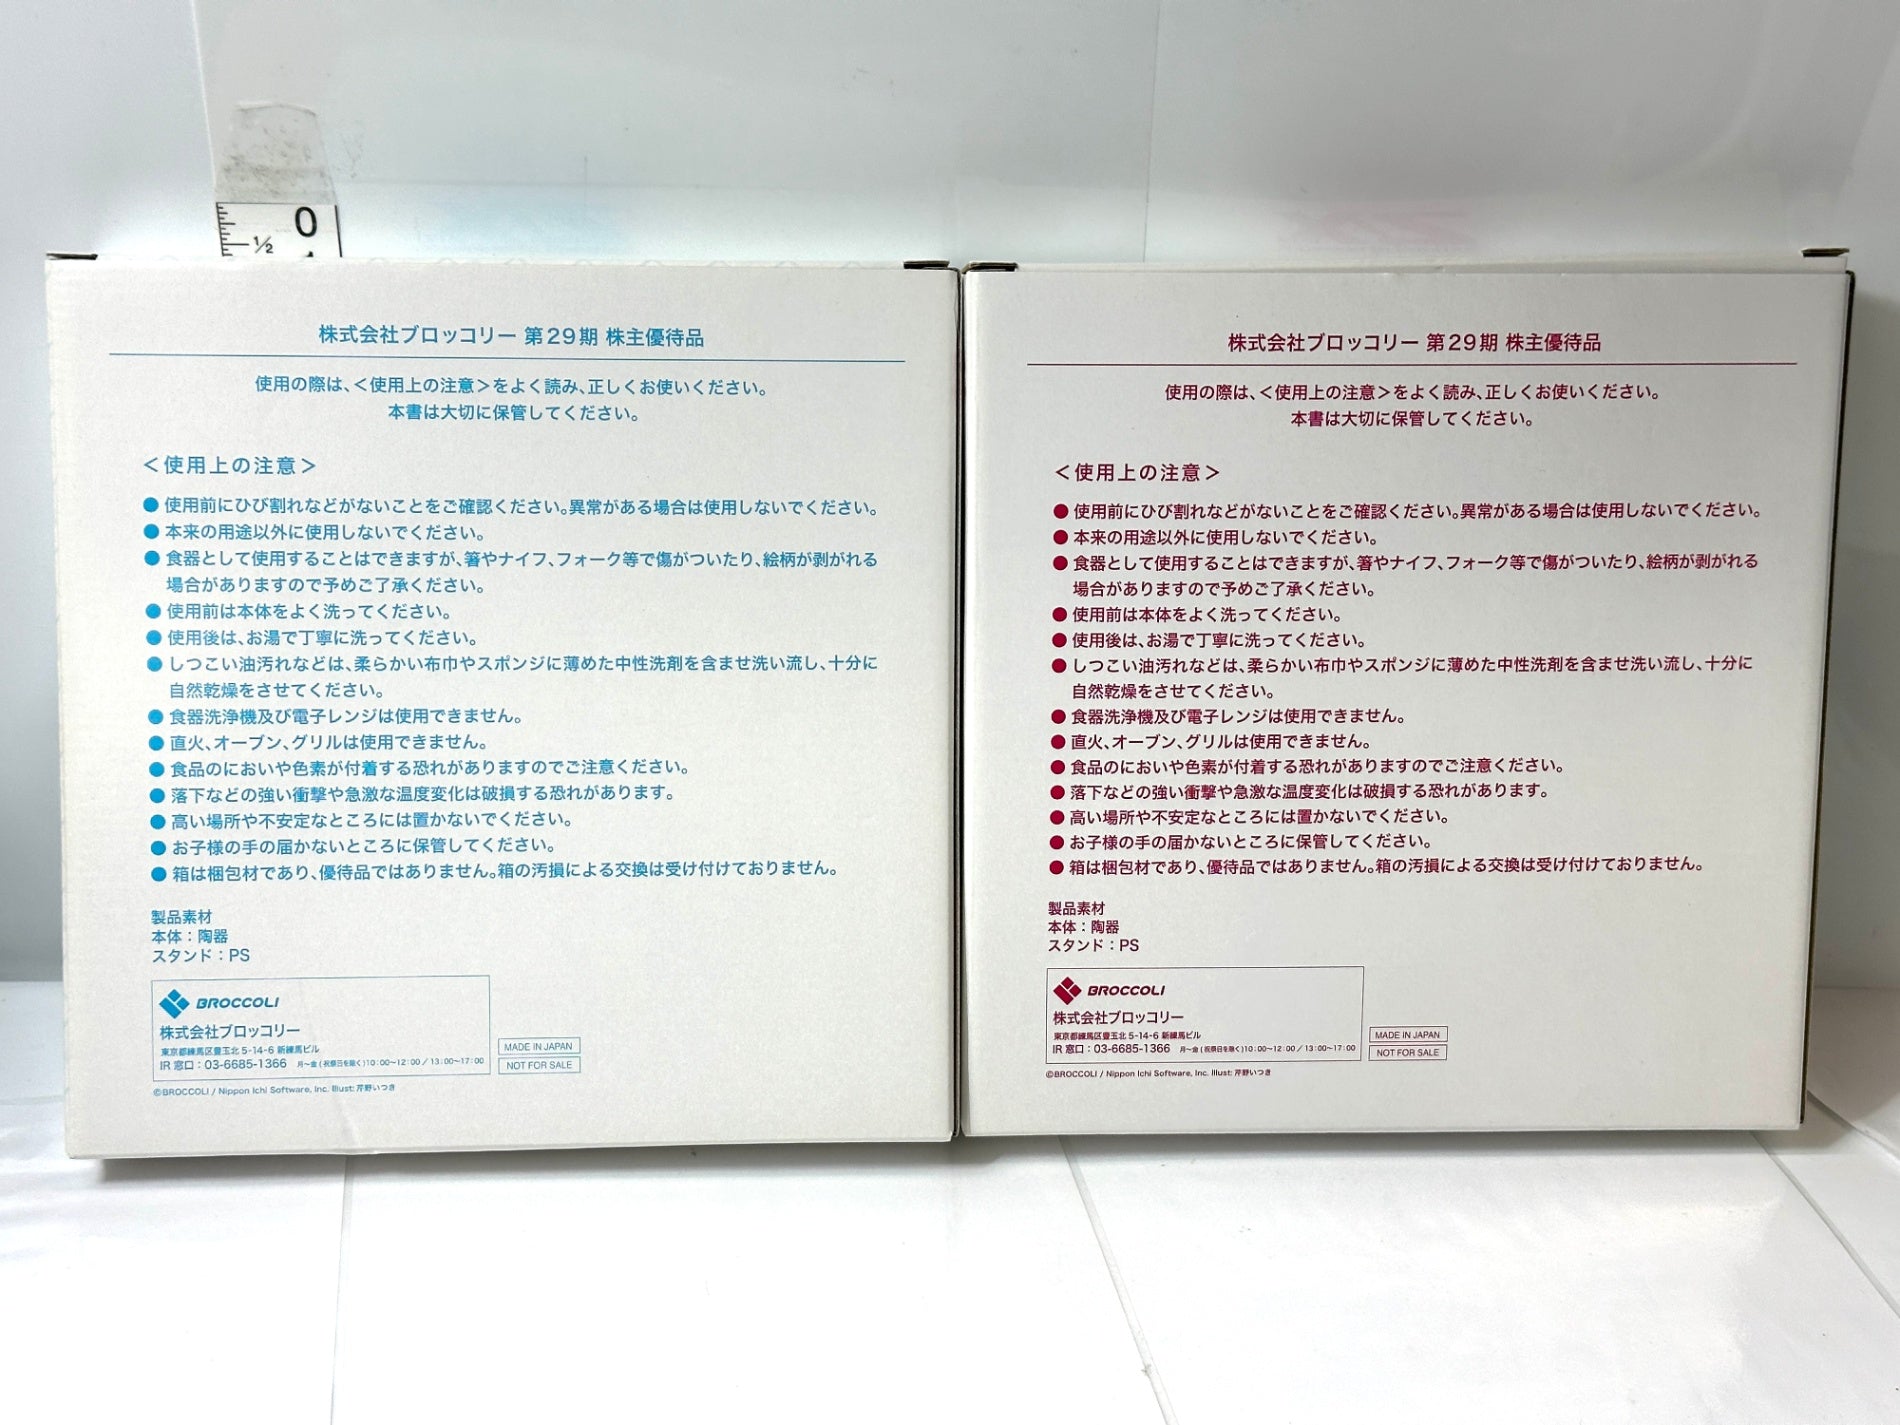 0
1/2
株式会社ブロッコリー 第29期 株主優待品
使用の際は、<使用上の注意>をよく読み、正しくお使いください。
本書は大切に保管してください。
<使用上の注意>
●使用前にひび割れなどがないことをご確認ください。異常がある場合は使用しないでください。
●本来の用途以外に使用しないでください。
●食器として使用することはできますが、箸やナイフ、フォーク等で傷がついたり、絵柄が剥がれる
場合がありますので予めご了承ください。
●使用前は本体をよく洗ってください。
●使用後は、お湯で丁寧に洗ってください。
●しつこい油汚れなどは、柔らかい布巾やスポンジに薄めた中性洗剤を含ませ洗い流し、十分に
自然乾燥をさせてください。
●食器洗浄機及び電子レンジは使用できません。
●直火、オーブン、グリルは使用できません。
●食品のにおいや色素が付着する恐れがありますのでご注意ください。
●落下などの強い衝撃や急激な温度変化は破損する恐れがあります。
●高い場所や不安定なところには置かないでください。
●お子様の手の届かないところに保管してください。
●箱は梱包材であり、優待品ではありません。箱の汚損による交換は受け付けておりません。
製品素材
本体：陶器
スタンド：PS
BROCCOLI
株式会社ブロッコリー
東京都練馬区豊玉北 5-14-6 新練馬ビル
IR 窓口：03-6685-1366 月〜金(祝祭日を除く)10:00〜12:00 / 13:00〜17:00
MADE IN JAPAN
NOT FOR SALE
©BROCCOLI / Nippon Ichi Software, Inc. Illust: 芹野いつき
株式会社ブロッコリー 第29期 株主優待品
使用の際は、<使用上の注意>をよく読み、正しくお使いください。
本書は大切に保管してください。
<使用上の注意>
●使用前にひび割れなどがないことをご確認ください。異常がある場合は使用しないでください。
●本来の用途以外に使用しないでください。
●食器として使用することはできますが、箸やナイフ、フォーク等で傷がついたり、絵柄が剥がれる
場合がありますので予めご了承ください。
●使用前は本体をよく洗ってください。
●使用後は、お湯で丁寧に洗ってください。
●しつこい油汚れなどは、柔らかい布巾やスポンジに薄めた中性洗剤を含ませ洗い流し、十分に
自然乾燥をさせてください。
●食器洗浄機及び電子レンジは使用できません。
●直火、オーブン、グリルは使用できません。
●食品のにおいや色素が付着する恐れがありますのでご注意ください。
●落下などの強い衝撃や急激な温度変化は破損する恐れがあります。
●高い場所や不安定なところには置かないでください。
●お子様の手の届かないところに保管してください。
●箱は梱包材であり、優待品ではありません。箱の汚損による交換は受け付けておりません。
製品素材
本体：陶器
スタンド：PS
BROCCOLI
株式会社ブロッコリー
東京都練馬区豊玉北 5-14-6 新練馬ビル
IR 窓口：03-6685-1366 月〜金(祝祭日を除く)10:00〜12:00 / 13:00〜17:00
MADE IN JAPAN
NOT FOR SALE
©BROCCOLI / Nippon Ichi Software, Inc. Illust: 芹野いつき